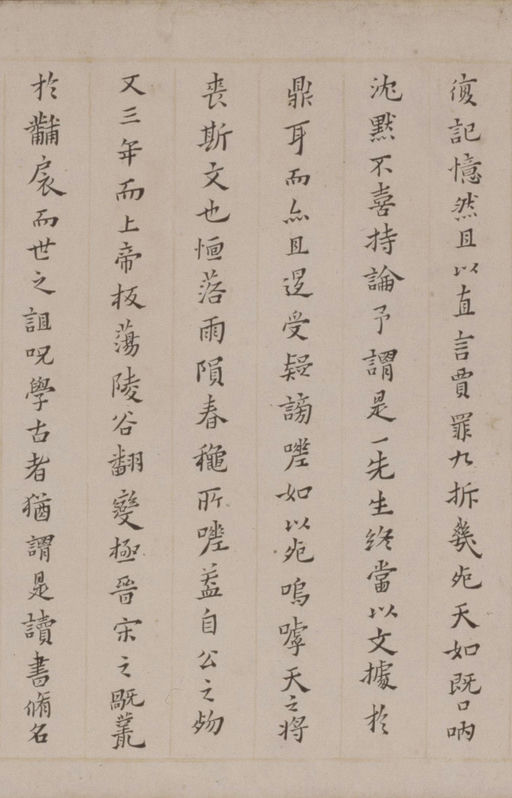 復記憶然且以直言賈罪九折幾死天如既口吶
沈默不喜持論予謂是一先生終當以文據於
鼎耳而亦且遝受疑謗如以死嗚嘑天之將
喪斯文也恒落雨隕春穐所蓋自公之歾
又三年而上帝板蕩陵谷翻變極晉宋之
於黼扆而世之詛呪學古者猶謂是讀書脩名